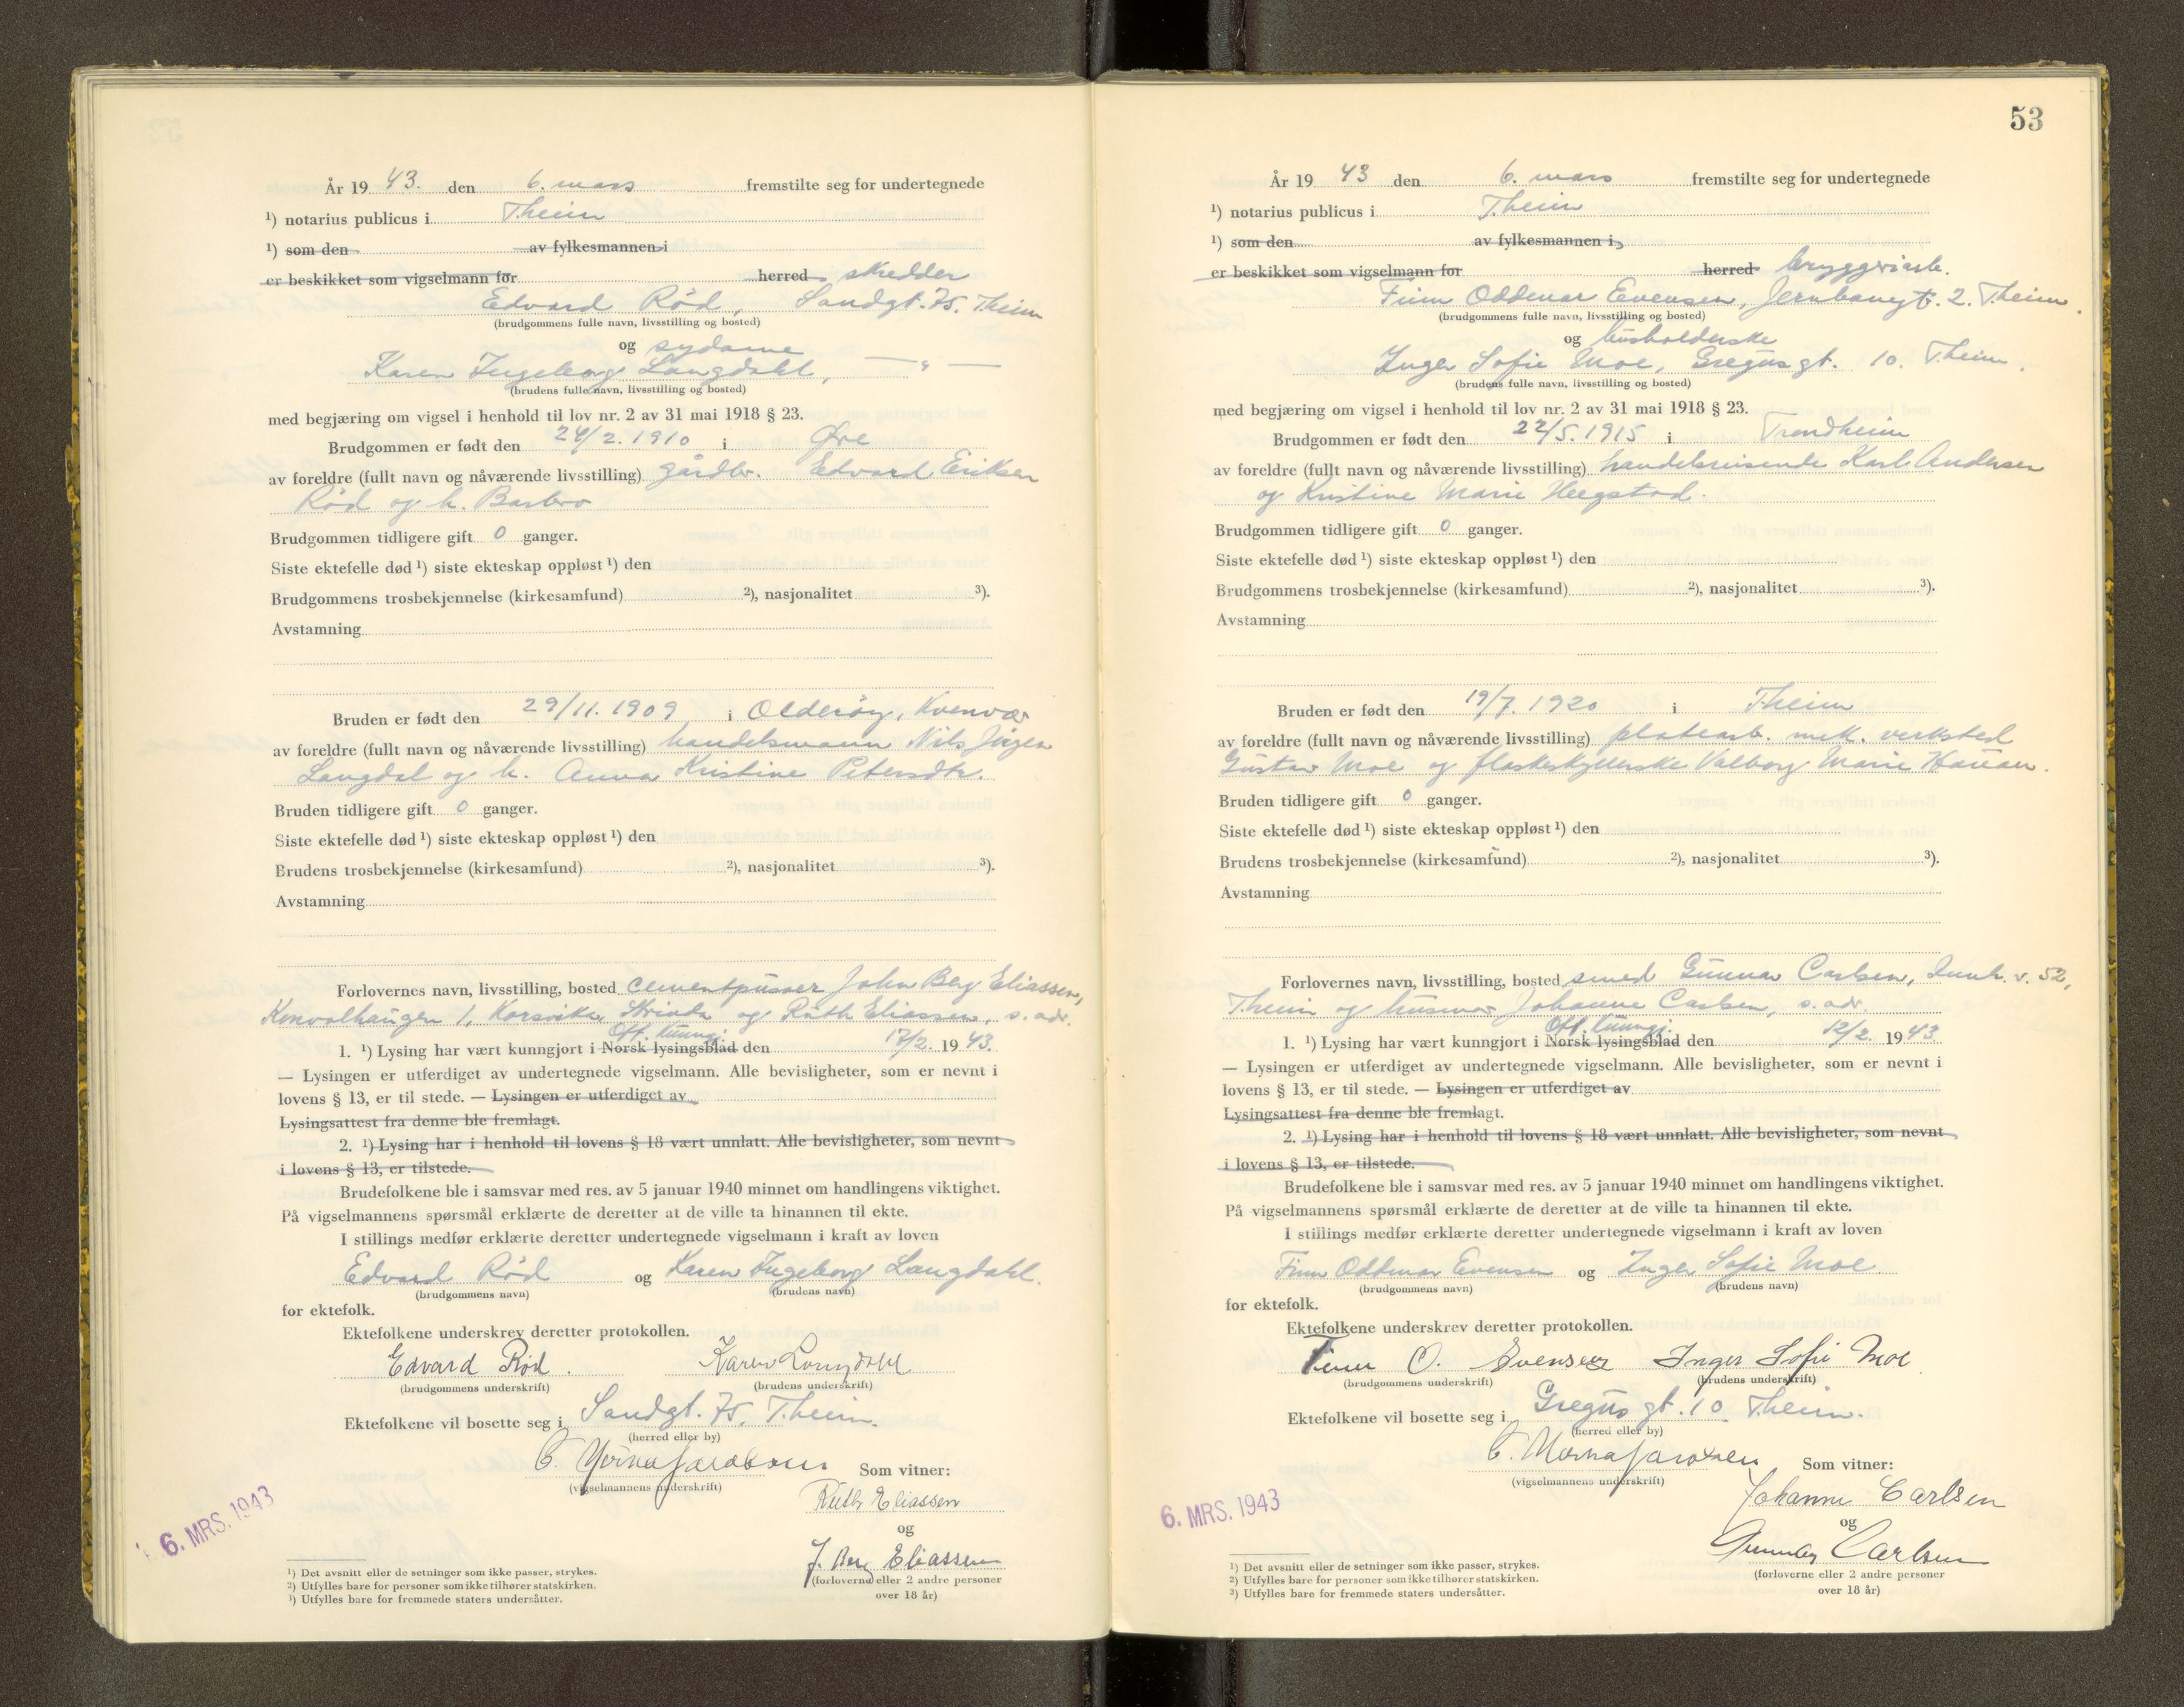 År 19 43. den 6. mars fremstilte seg for undertegnede
¹) notarius publicus i T.heim
¹) som den av fylkesmannen i
er beskikket som vigselmann for herred skredder
Edvard Rød, Sandgt. 75. T.heim
(brudgommens fulle navn, livsstilling og bosted)
og sydame
Karen Ingeborg Langdahl, — " —
(brudens fulle navn, livsstilling og bosted)
med begjæring om vigsel i henhold til lov nr. 2 av 31 mai 1918 § 23.
Brudgommen er født den 24/2. 1910 i Øre
av foreldre (fullt navn og nåværende livsstilling) gårdbr. Edvard Eriksen
Rød og h. Barbro
Brudgommen tidligere gift 0 ganger.
Siste ektefelle død ¹) siste ekteskap oppløst ¹) den
Brudgommens trosbekjennelse (kirkesamfund) ²), nasjonalitet ³).
Avstamning
Bruden er født den 29/11. 1909 i Olderøy, Kvenvær
av foreldre (fullt navn og nåværende livsstilling) handelsmann Nils Jørgen
Langdal og h. Anna Kristine Petersdtr.
Bruden tidligere gift 0 ganger.
Siste ektefelle død ¹) siste ekteskap oppløst ¹) den
Brudens trosbekjennelse (kirkesamfund) ²), nasjonalitet ³).
Avstamning
Forlovernes navn, livsstilling, bosted cementpusser John Berg Eliassen,
Konvalhaugen 1, Korsvika, Strinda og Ruth Eliassen, s. adr.
Off. kunngj.
1. ¹) Lysing har vært kunngjort i Norsk lysingsblad den 17/2. 19 43.
— Lysingen er utferdiget av undertegnede vigselmann. Alle bevisligheter, som er nevnt i
lovens § 13, er til stede. — Lysingen er utferdiget av
Lysingsattest fra denne ble fremlagt.
2. ¹) Lysing har i henhold til lovens § 18 vært unnlatt. Alle bevisligheter, som nevnt
i lovens § 13, er tilstede.
Brudefolkene ble i samsvar med res. av 5 januar 1940 minnet om handlingens viktighet.
På vigselmannens spørsmål erklærte de deretter at de ville ta hinannen til ekte.
I stillings medfør erklærte deretter undertegnede vigselmann i kraft av loven
Edvard Rød og Karen Ingeborg Langdahl.
(brudgommens navn) (brudens navn)
for ektefolk.
Ektefolkene underskrev deretter protokollen.
Edvard Rød. Karen Langdahl
(brudgommens underskrift) (brudens underskrift)
Ektefolkene vil bosette seg i Sandgt. 75, T.heim.
(herred eller by)
Som vitner:
(vigselmannens underskrift)
Ruth Eliassen
og
J. Berg Eliassen
(forloverne eller 2 andre personer
over 18 år)
6. MRS. 1943
¹) Det avsnitt eller de setninger som ikke passer, strykes.
²) Utfylles bare for personer som ikke tilhører statskirken.
³) Utfylles bare for fremmede staters undersåtter.
53
År 19 43 den 6. mars fremstilte seg for undertegnede
¹) notarius publicus i T.heim
¹) som den av fylkesmannen i
er beskikket som vigselmann for herred bryggeriarb.
Finn Oddmar Evensen, Jernbanegt. 2. T.heim.
(brudgommens fulle navn, livsstilling og bosted)
og husholderske
Inger Sofie Moe, Gregusgt. 10. T.heim.
(brudens fulle navn, livsstilling og bosted)
med begjæring om vigsel i henhold til lov nr. 2 av 31 mai 1918 § 23.
Brudgommen er født den 22/5. 1915 i Trondheim
av foreldre (fullt navn og nåværende livsstilling) handelsreisende Karl Andersen
og Kristine Marie Hegstad.
Brudgommen tidligere gift 0 ganger.
Siste ektefelle død ¹) siste ekteskap oppløst ¹) den
Brudgommens trosbekjennelse (kirkesamfund) ²), nasjonalitet ³).
Avstamning
Bruden er født den 19/7. 1920 i T.heim
av foreldre (fullt navn og nåværende livsstilling) platearb. mek. verksted
Gustav Moe og flaskeskyllerske Valborg Marie Hauan.
Bruden tidligere gift 0 ganger.
Siste ektefelle død ¹) siste ekteskap oppløst ¹) den
Brudens trosbekjennelse (kirkesamfund) ²), nasjonalitet ³).
Avstamning
Forlovernes navn, livsstilling, bosted smed Gunnar Carlsen, Innh. v. 52,
T.heim og husmor Johanne Carlsen, s. adr.
Off. kunngj.
1. ¹) Lysing har vært kunngjort i Norsk lysingsblad den 12/2. 19 43.
— Lysingen er utferdiget av undertegnede vigselmann. Alle bevisligheter, som er nevnt i
lovens § 13, er til stede. — Lysingen er utferdiget av
Lysingsattest fra denne ble fremlagt.
2. ¹) Lysing har i henhold til lovens § 18 vært unnlatt. Alle bevisligheter, som nevnt
i lovens § 13, er tilstede.
Brudefolkene ble i samsvar med res. av 5 januar 1940 minnet om handlingens viktighet.
På vigselmannens spørsmål erklærte de deretter at de ville ta hinannen til ekte.
I stillings medfør erklærte deretter undertegnede vigselmann i kraft av loven
Finn Oddmar Evensen og Inger Sofie Moe
(brudgommens navn) (brudens navn)
for ektefolk.
Ektefolkene underskrev deretter protokollen.
Finn O. Evensen Inger Sofie Moe
(brudgommens underskrift) (brudens underskrift)
Ektefolkene vil bosette seg i Gregusgt. 10 T.heim.
(herred eller by)
Som vitner:
(vigselmannens underskrift)
Johanne Carlsen
og
Gunnar Carlsen
(forloverne eller 2 andre personer
over 18 år)
6. MRS. 1943
¹) Det avsnitt eller de setninger som ikke passer, strykes.
²) Utfylles bare for personer som ikke tilhører statskirken.
³) Utfylles bare for fremmede staters undersåtter.